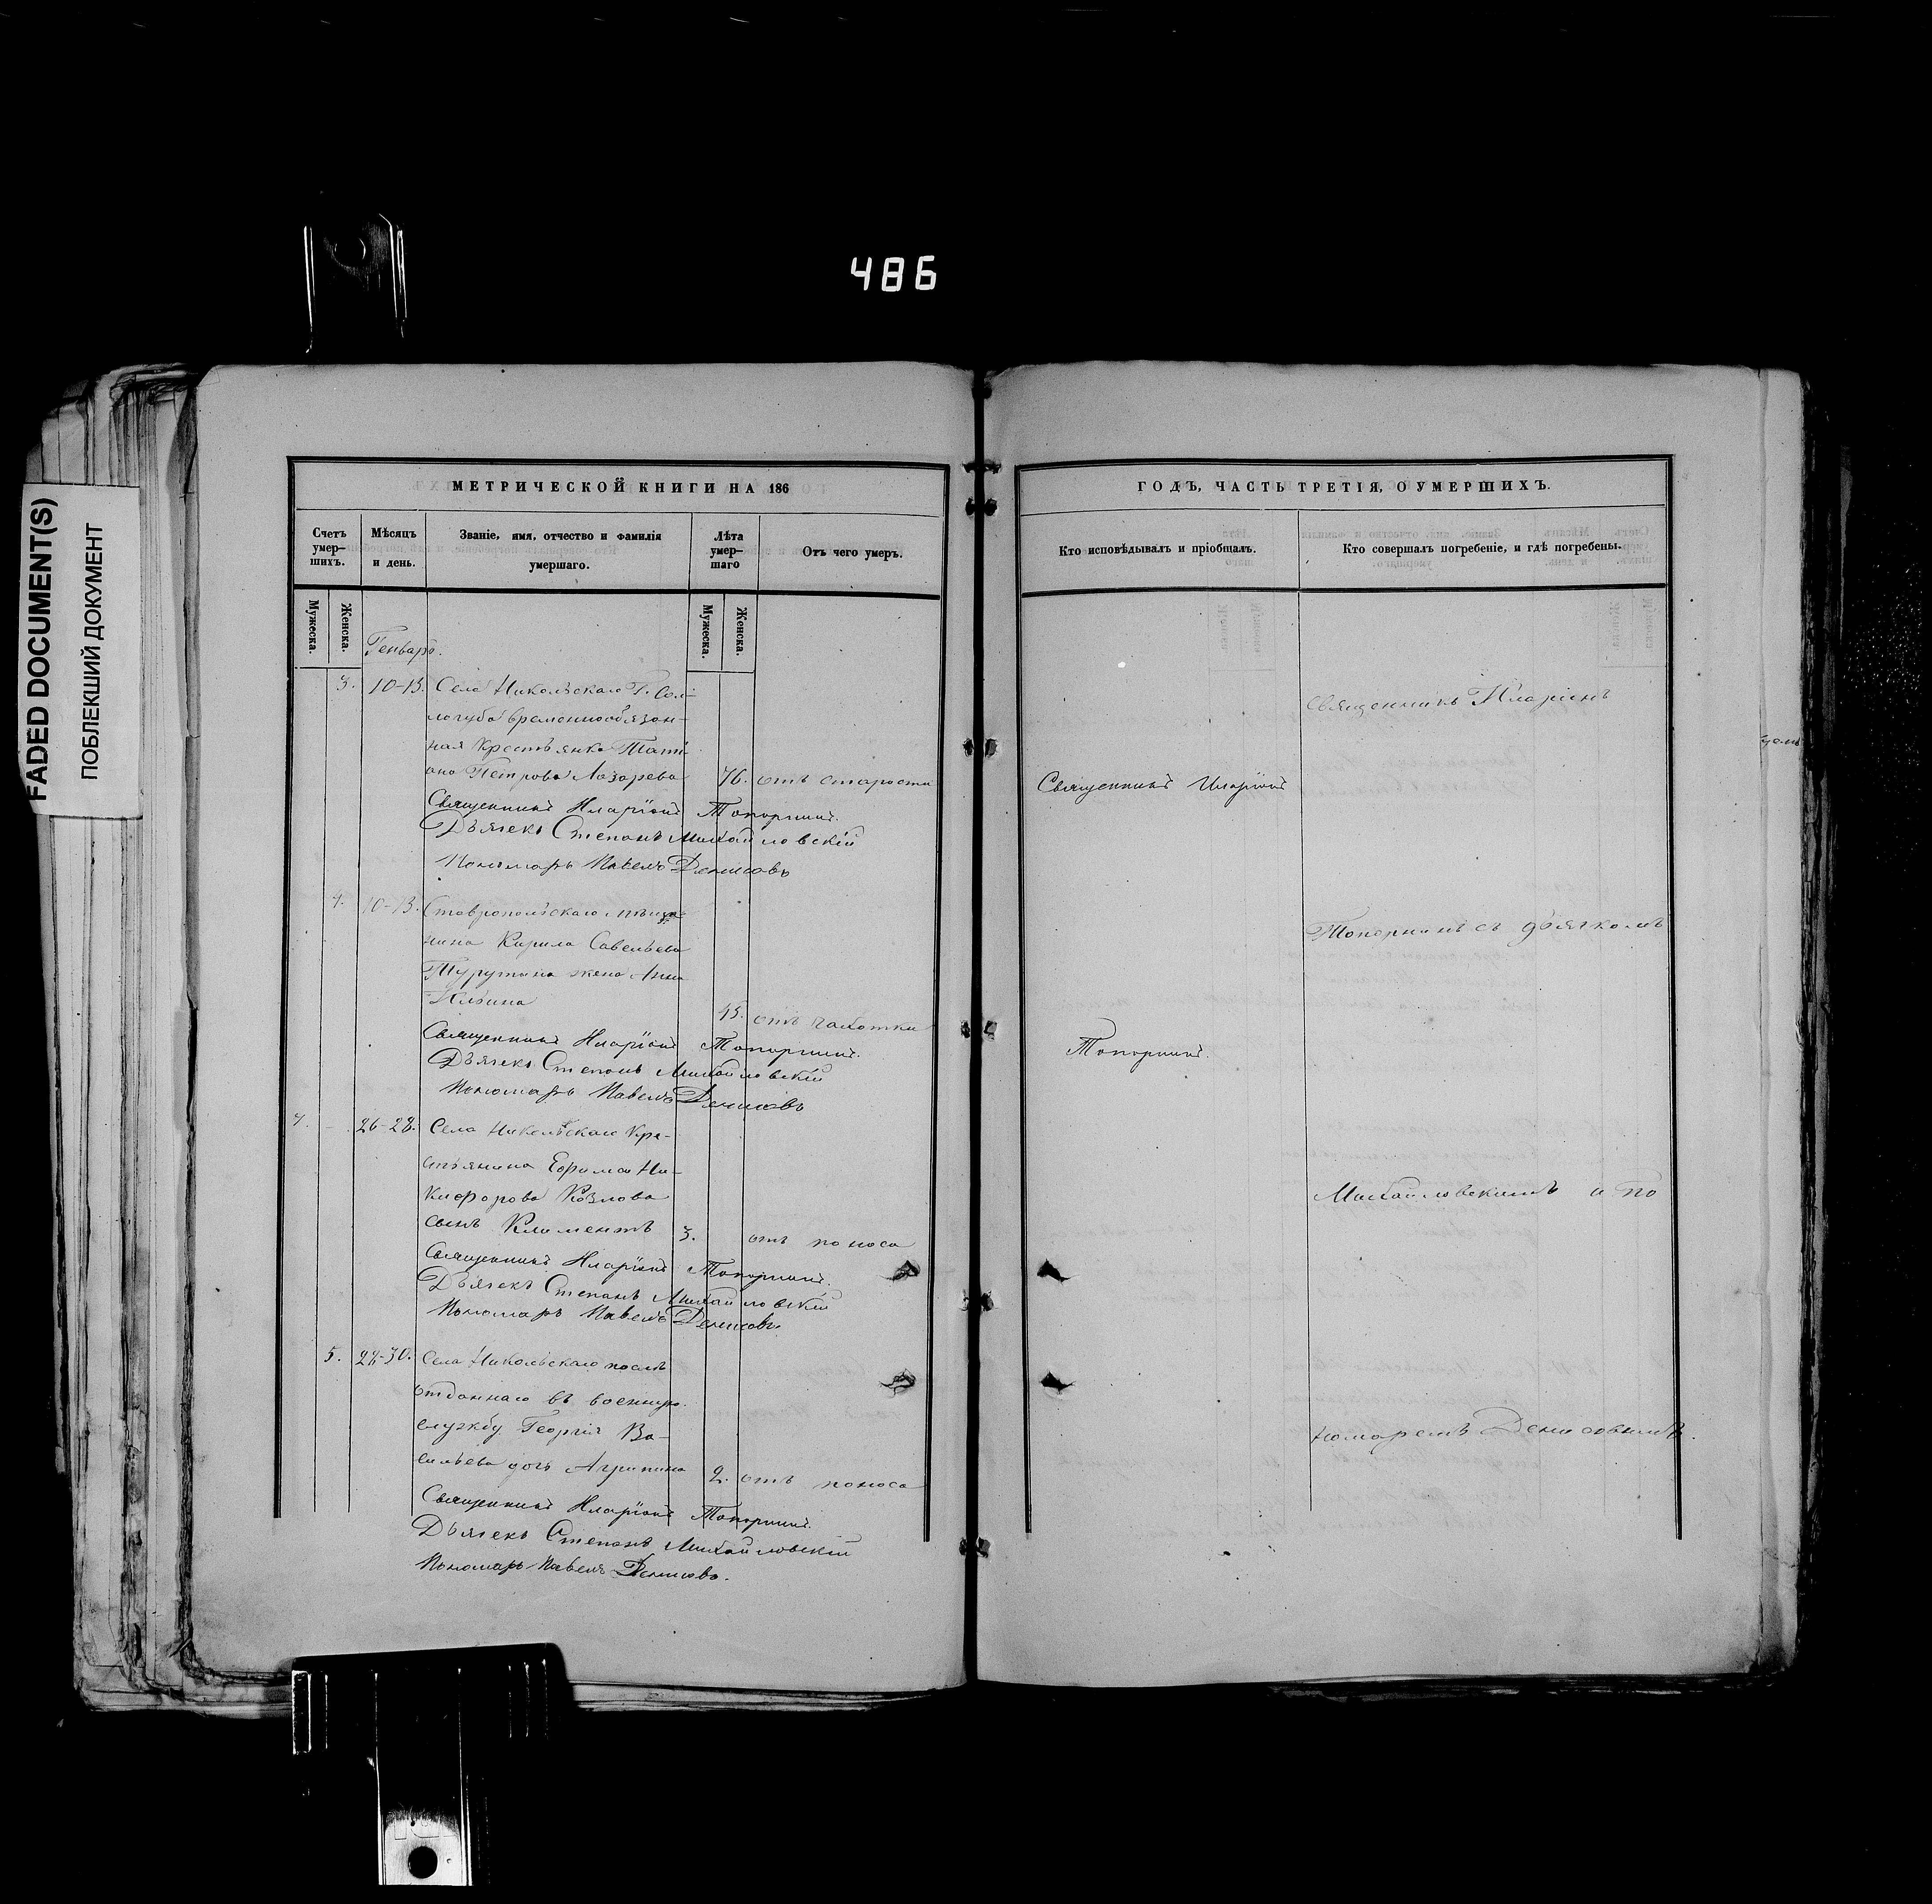 486
FADED DOCUMENT(S)
ПОБЛЕКШИЙ ДОКУМЕНТ
МЕТРИЧЕСКОЙ КНИГИ НА 186
Счетъ умер–шихъ.
Мѣсяцъ и день.
Званіе, имя, отчество и фамилія умершаго.
Лѣта умер–шаго
Отъ чего умеръ.
Мужеска.
Женска.
Мужеска.
Женска.
Генварь.
3. 10-13. Села Никольскаго Г. Сол-
логуба временнообязан-
ная крестьянка Тати-
ана Петрова Лазарева 76. отъ старости
Священникъ Иларіонъ Топорнинъ.
Дьячекъ Степанъ Михайловскій
Пономарь Павелъ Денисовъ
4. 10-13. Ставропольскаго мѣща-
нина Кирила Савельева
жена Анна
Ильина
45. отъ чахотки
Священникъ Иларіонъ Топорнинъ.
Дьячекъ Степанъ Михайловскій
Пономарь Павелъ Денисовъ
26-28. Села Никольскаго Кре-
стьянина Ефима Ни-
кифорова Козлова
сынъ Климентъ 3. отъ поноса
Священникъ Иларіонъ Топорнинъ.
Дьячекъ Степанъ Михайловскій
Пономарь Павелъ Денисовъ
5. 28-30. Села Никольскаго послѣ
отданнаго въ военную
службу Георгія Ва-
сильева дочь Агрипина 2. отъ поноса
Священникъ Иларіонъ Топорнинъ.
Дьячекъ Степанъ Михайловскій
Пономарь Павелъ Денисовъ.
ГОДЪ, ЧАСТЬ ТРЕТІЯ, О УМЕРШИХЪ.
Кто исповѣдывалъ и пріобщалъ.
Кто совершалъ погребеніе, и гдѣ погребены.
Священникъ Иларіонъ
Топорнинъ.
Священникъ Иларіонъ
Топорнинъ съ дьячкомъ
Михайловскимъ и по
номаремъ Денисовымъ.